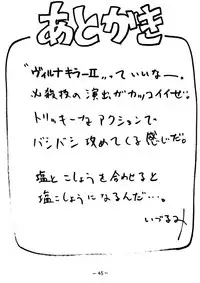 あとがき
"ヴィルナキラーⅡ"っていいなー。
必殺技の演出がカッコイイぜ。
トリッキーなアクションで
バシバシ攻めてくる感じだ。
塩とこしょうを合わせると
塩こしょうになるんだ…。
いづるみ
-45-